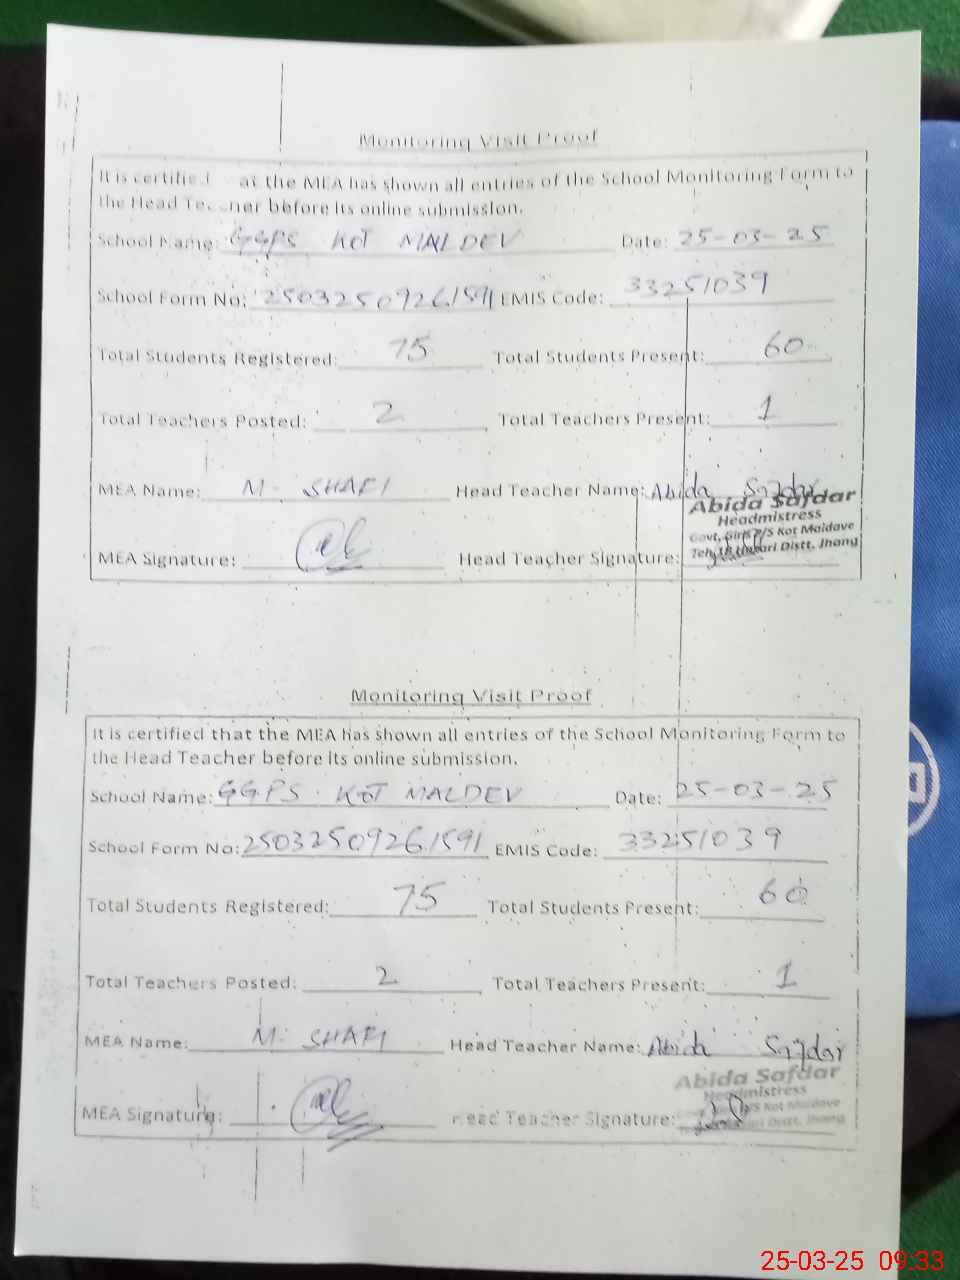 Monitoring Visit Proof
It is certified at the MEA has shown all entries of the School Monitoring Form to
the Head Teacher before its online submission.
School Name: GGPS KOT MALDEV Date: 25-03-25
School Form No: 25032509261591 EMIS Code: 33251039
Total Students Registered: 75 Total Students Present: 60
Total Teachers Posted: 2 Total Teachers Present: 1
MEA Name: M. SHAFI Head Teacher Name: Abida Safdar
Abida Safdar
Headmistress
Govt, Girls P/S Kot Maldave
MEA Signature: Head Teacher Signature:
Teh, 18 Hazari Distt. Jhang
Monitoring Visit Proof
It is certified that the MEA has shown all entries of the School Monitoring Form to
the Head Teacher before its online submission.
School Name: GGPS KOT MALDEV Date: 25-03-25
School Form No: 25032509261591 EMIS Code: 33251039
Total Students Registered: 75 Total Students Present: 60
Total Teachers Posted: 2 Total Teachers Present: 1
MEA Name: M. SHAFI Head Teacher Name: Abida Safdar
Abida Safdar
Headmistress
P/S Kot Maldave
MEA Signature: Head Teacher Signature:
Distt. Jhang
25-03-25 09:33